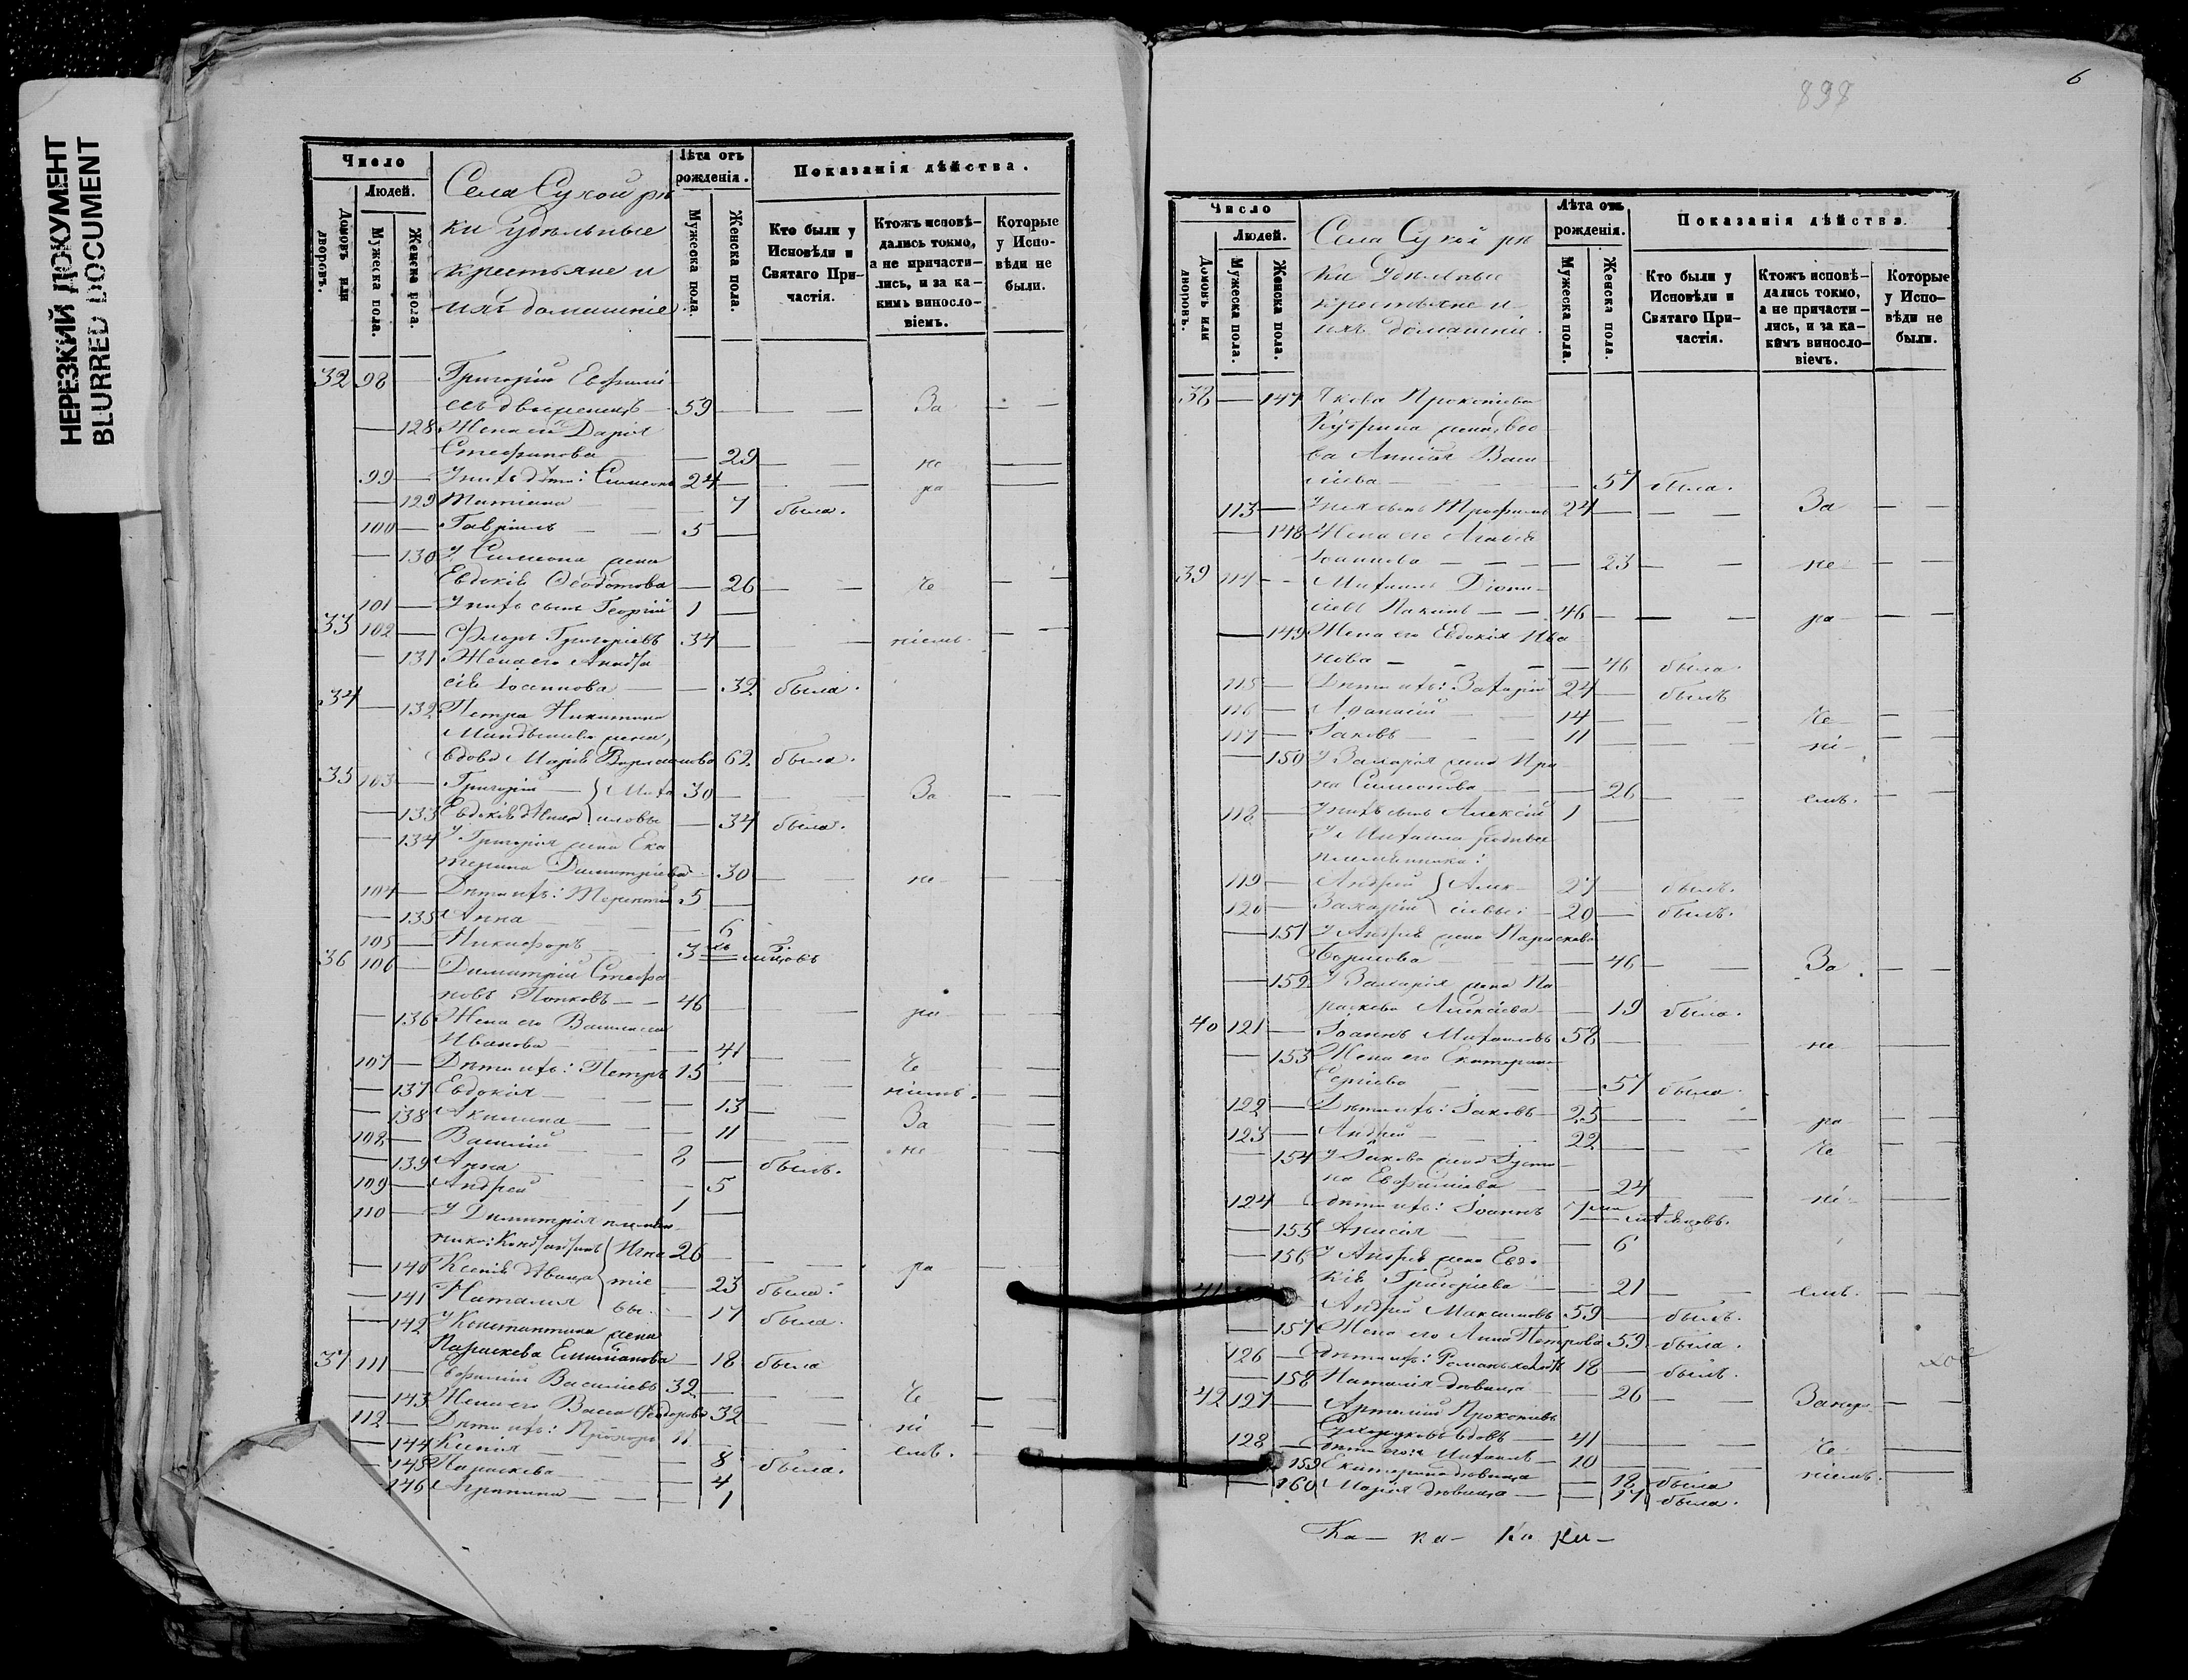 НЕРЕЗКИЙ ДОКУМЕНТ
BLURRED DOCUMENT
Число
Людей.
Домовъ или дворовъ.
Мужеска пола.
Женска пола.
Села Сухой рѣ
ки удѣльные
крестьяне и
ихъ домашніе.
Лѣта отъ рожденія.
Мужеска пола.
Женска пола.
Показанія дѣйства.
Кто были у Исповѣди и Святаго Причастія.
Ктожъ исповѣдались токмо, а не причастились, и за какимъ винословіемъ.
Которые у Исповѣди не были.
32 98 — Григорій Евфимі
евъ 59 — — — За — —
— 128 Жена его Дарія
Стефанова — — 29 — — не —
99 — У нихъ дѣти: Симеонъ 24 — — ра —
— 129 Татіана — — 7 была.
100 — Гавріилъ — — 5 —
— 130 У Симеона жена
Евдокія Ѳеодотова — 26 — — че — —
101 — У нихъ сынъ Георгій 1 —
33 102 — Флоръ Григоріевъ 34 — — ніемъ. — —
— 131 Жена его Анаста
сія Іоаннова — — 32 была.
34 — 132 Петра Никитина
жена,
вдова Марія 62 была.
35 103 — Григорій — Миха 30 — — За — —
— 133 Евдокія дѣвица иловы — 34 была.
— 134 У Григорія жена Ека
терина Димитріева — 30 — — не — —
104 — Дѣти ихъ: Терентій 5 —
— 135 Анна — — 6
105 — Никифоръ 3хъ мѣсяцовъ
36 106 — Димитрій Стефа
новъ Попковъ — — 46 — — ра —
— 136 Жена его Василисса
Иванова — — — 41 — — —
107 — Дѣти ихъ: Петръ 15 — — че —
— 137 Евдокія — — — 13 — — ніемъ. —
— 138 Акилина — — — 11 — — За —
108 — Василій — — 8 — не —
— 139 Анна — — 5 былъ.
109 — Андрей — — 1 —
110 — У Димитрія племян
ники: Констан Игна 26 — — ра —
— 140 Ксенія дѣвица тіе — 23 была.
— 141 Наталія вы. — 17 была.
— 142 У Константина жена
Параскева Емиліанова — 18 была
37 111 — Евфимій Василіевъ 32 — — — че —
— 143 Жена его Васса Ѳеодорова 32 — — ні —
112 — Дѣти ихъ: Прохоръ 11 — — емъ. —
— 144 Ксенія — — 8 была.
— 145 Параскева — — 4
— 146 Агрипина — — 1
898
6
Число
Людей.
Домовъ или дворовъ.
Мужеска пола.
Женска пола.
Села Сухой рѣ
ки Удѣльные
крестьяне и
ихъ домашніе.
Лѣта отъ рожденія.
Мужеска пола.
Женска пола.
Показанія дѣйства.
Кто были у Исповѣди и Святаго Причастія.
Ктожъ исповѣдались токмо, а не причастились, и за какимъ винословіемъ.
Которые у Исповѣди не были.
38 — 147 Якова Прокопіева
Куприна жена, вдо
ва Аннісія Васи
ліева — — 57 была.
113 — У нея сынъ Трофимъ 24 — — — За — —
— 148 Жена его Агафія
Іоаннова — — — — 23 — — не — —
39 114 — Михаилъ Діони
сіевъ Пакинъ — — 46 — — ра —
— 149 Жена его Евдокія Ива
нова — — — — 46 была.
115 — Дѣти ихъ: Захарій 24 — былъ
116 — Аѳанасій — — 14 — — че —
117 — Іаковъ — — 11 — — ні —
— 150 У Захарія жена Ири
на Симеонова — — 26 — — емъ. — —
118 — У нихъ сынъ Алексій 1 —
У Михаила родные
племянники:
119 — Андрей Алек 27 — былъ.
120 — Захарій сіевы: 20 — былъ.
— 151 У Андрея жена Параскева
Борисова — — 46 — — За. — —
— 152 У Захарія жена Па
раскева Алексіева — 19 была.
40 121 — Іоаннъ Михаиловъ 58 — — не —
— 153 Жена его Екатерина
Сергіева — — 57 была.
122 — Дѣти ихъ: Іаковъ 25 — — ра —
123 — Андрей — — 22 — — че —
— 154 У Іакова жена Іусти
на Евфиміева — — 24 — — ні —
124 — Дѣти ихъ: Іоаннъ 7ми мѣсяцовъ.
— 155 Анисія — — 6
— 156 У Андрея жена Евдо
кія Григоріева — — 21 — — емъ. — —
41 Андрей Максимовъ 59 — былъ.
— 157 Жена его Анна Петрова 59 была.
126 — Дѣти ихъ: Романъ холостъ 18 — былъ.
— 158 Наталія дѣвица — 26 — — Занера —
42 127 — Артемій Прокопіевъ
вдовъ — 41 — — че —
128 — Дѣти его: Михаилъ — 10 — — ніемъ. —
159 Екатерина дѣвица — 18 была
— 160 Марія дѣвица — — 17 была.
Ка — ки — Ка ки —